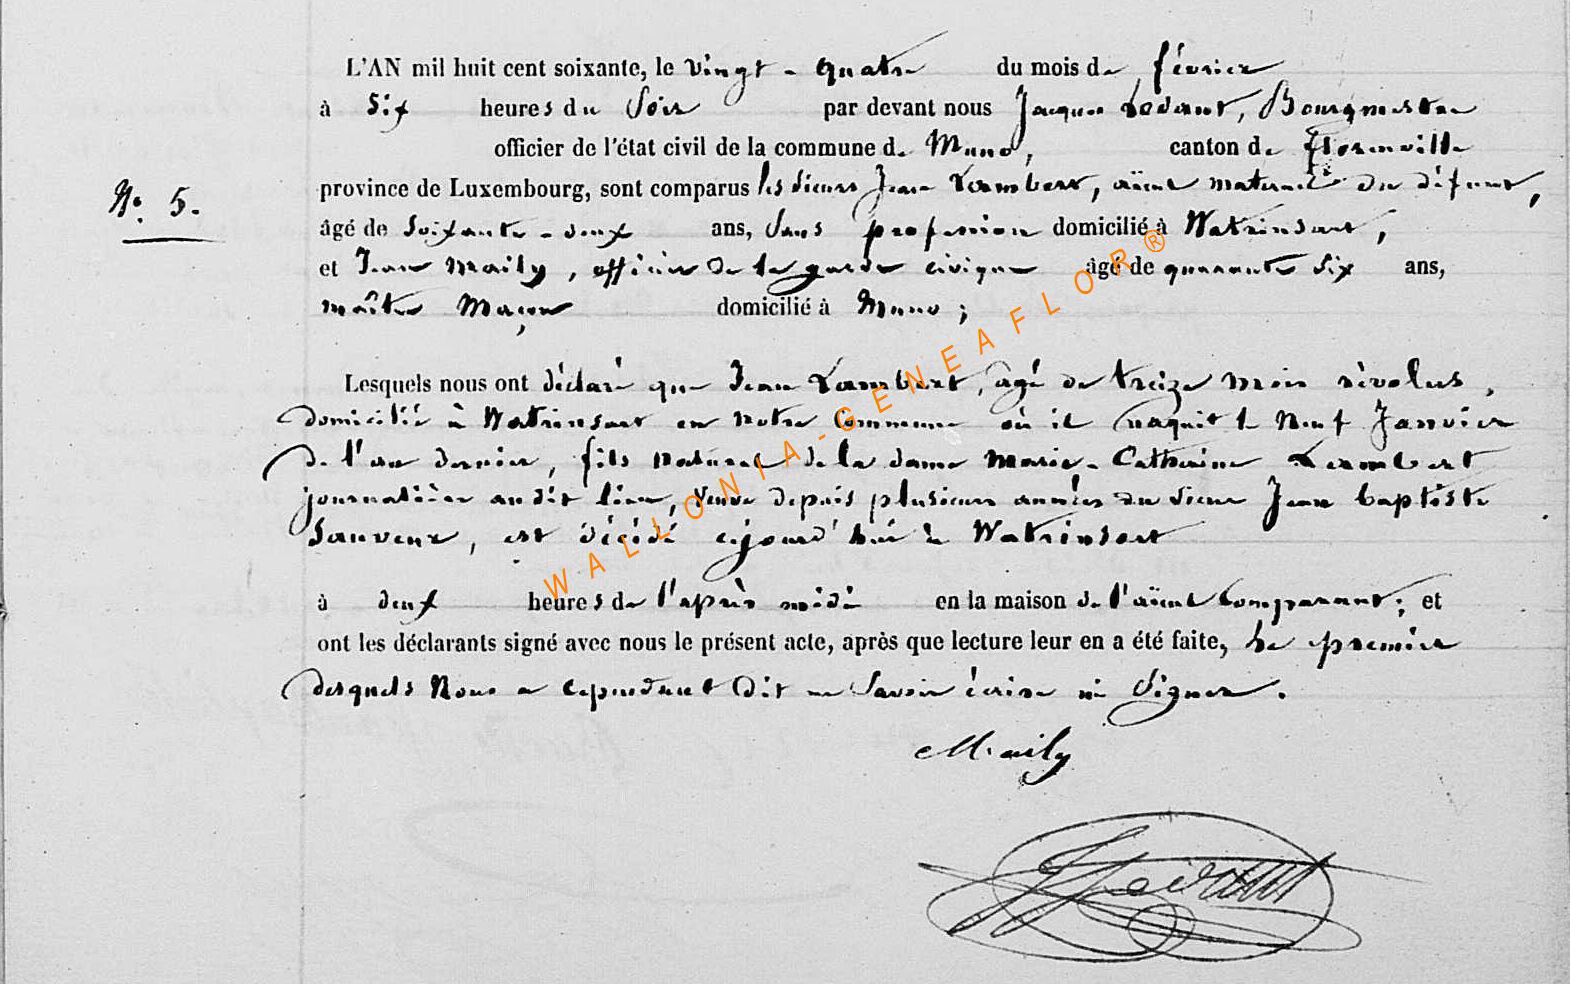 L'AN mil huit cent soixante, le vingt-quatre du mois de février
à six heures du soir par devant nous Jacques Ledant, Bourgmestre
officier de l'état civil de la commune de Muno, canton de Florenville
N° 5.
province de Luxembourg, sont comparus les sieurs Jean Lambert, aïeul maternel du défunt,
âgé de soixante-deux ans, sans profession domicilié à Watrinsart,
et Jean Maily, officier de la garde civique âgé de quarante six ans,
maître maçon domicilié à Muno ;
Lesquels nous ont déclaré que Jean Lambert, âgé de treize mois révolus,
domicilié à Watrinsart en notre commune où il naquit le neuf Janvier
de l'an dernier, fils naturel de la dame Marie-Catherine Lambert
journalière audit lieu, veuve depuis plusieurs années du sieur Jean baptiste
Sauveur, est décédé cejourd'hui à Watrinsart
à deux heures de l'après midi en la maison de l'aïeul comparant ; et
ont les déclarants signé avec nous le présent acte, après que lecture leur en a été faite, le premier
desquels nous a cependant dit ne savoir écrire ni signer.
Maily
JJLedant
WALLONIA-GENEAFLOR®